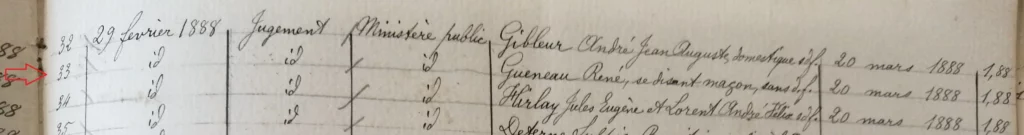 32 29 fevrier 1888 Jugement Ministère public Gibleur André Jean Auguste, domestique sdf. 20 mars 1888 1,88
88 33 id id id Gueneau René, se disant maçon, sans d.f. 20 mars 1888 1,88
88 34 id id id Hirlay Jules Eugène et Lorent André Félix sdf. 20 mars 1888 1,88
35 id id id 20 mars 1888 1,88